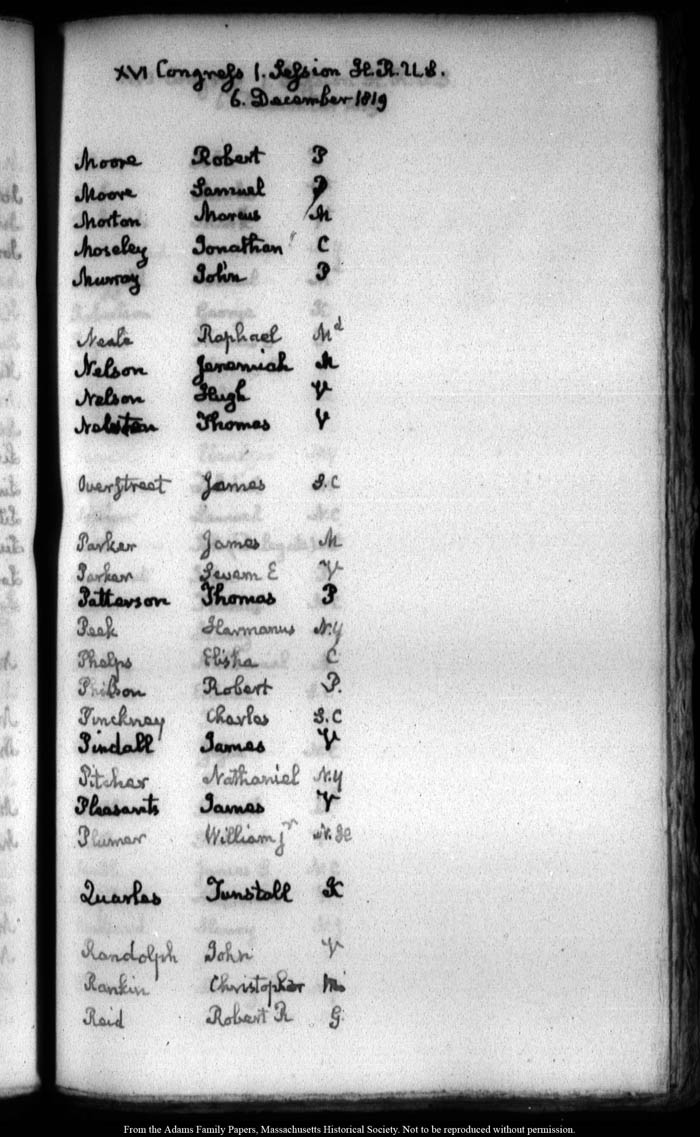 XVI Congress 1. Session H.R.U.S.
6. December 1819
Moore Robert P
Moore Samuel P
Morton Marcus M
Moseley Jonathan C
Murray John P
Neale Raphael Md
Nelson Jeremiah M
Nelson Hugh V
Thomas V
Overstreet James S.C
Parker James M
Parker Severn E V
Patterson Thomas P
Peek Harmanus N.Y
Phelps Elisha C
Philson Robert P.
Pinckney Charles S.C
Pindall James V
Pitcher Nathaniel N.Y
Pleasants James V
Plumer William Jr N.H
Quarles Tunstall K
Randolph John V
Rankin Christopher Mi
Reid Robert R G.
From the Adams Family Papers, Massachusetts Historical Society. Not to be reproduced without permission.